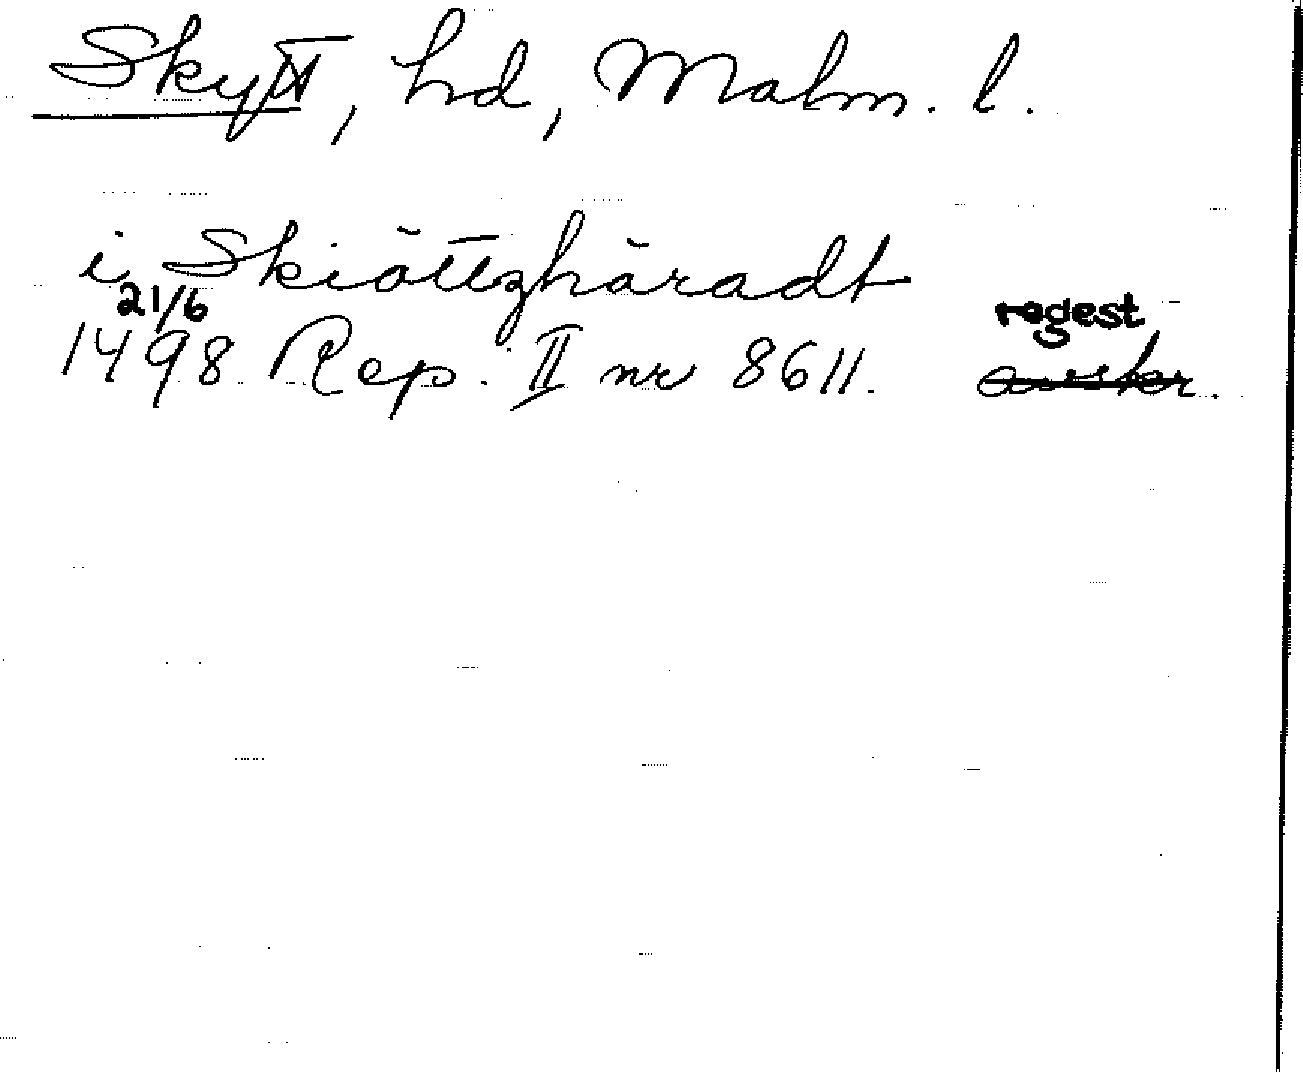 Skytt, hd, Malm. l.
i Skiöttzhäradt
21/6 regest
1498 Rep. II nr 8611. avskr.